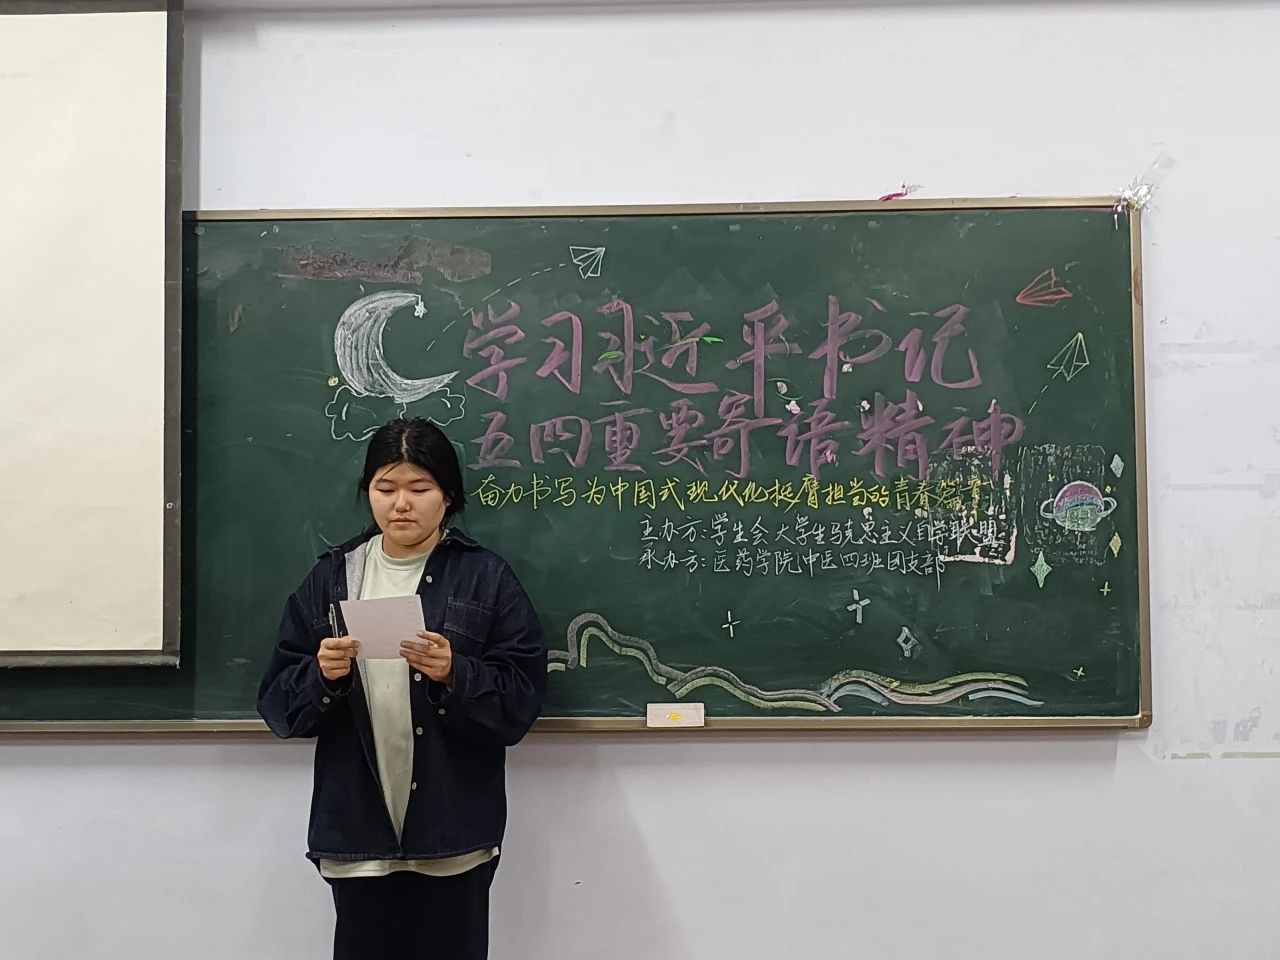 学习习近平书记
五四重要寄语精神
奋力书写为中国式现代化挺膺担当的青春篇章
主办方:学生会 大学生马克思主义自学联盟
承办方:医药学院中医四班团支部